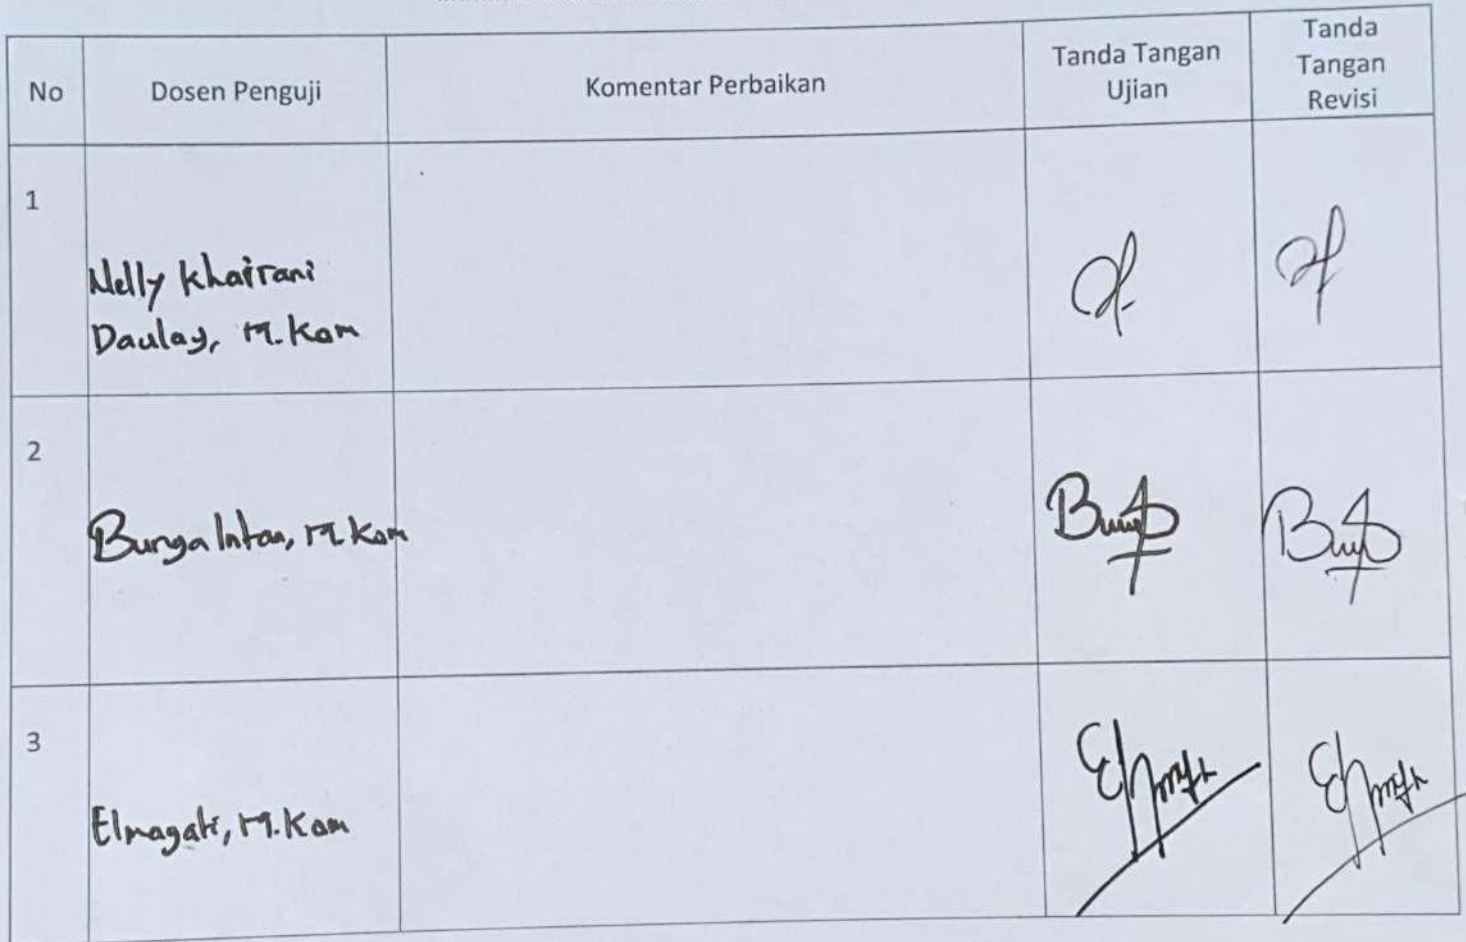 No
Dosen Penguji
Komentar Perbaikan
Tanda Tangan
Ujian
Tanda
Tangan
Revisi
1
Nelly Khairani
Daulay, M.Kom
2
Bunga Intan, M.Kom
3
Elmayati, M.Kom